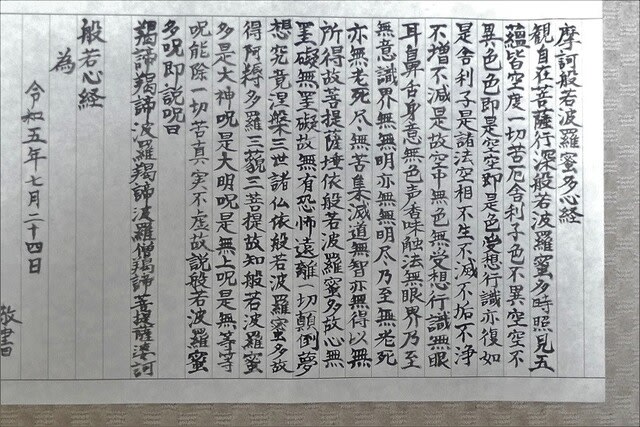 摩訶般若波羅蜜多心経
観自在菩薩行深般若波羅蜜多時照見五
蘊皆空度一切苦厄舎利子色不異空空不
異色色即是空空即是色受想行識亦復如
是舎利子是諸法空相不生不滅不垢不浄
不増不減是故空中無色無受想行識無眼
耳鼻舌身意無色声香味触法無眼界乃至
無意識界無無明亦無無明尽乃至無老死
亦無老死尽無苦集滅道無智亦無得以無
所得故菩提薩埵依般若波羅蜜多故心無
罣礙無罣礙故無有恐怖遠離一切顛倒夢
想究竟涅槃三世諸仏依般若波羅蜜多故
得阿耨多羅三藐三菩提故知般若波羅蜜
多是大神呪是大明呪是無上呪是無等等
呪能除一切苦真実不虚故説般若波羅蜜
多呪即説呪曰
羯諦羯諦波羅羯諦波羅僧羯諦菩提薩婆訶
般若心経
為
令和五年七月二十四日
敬書